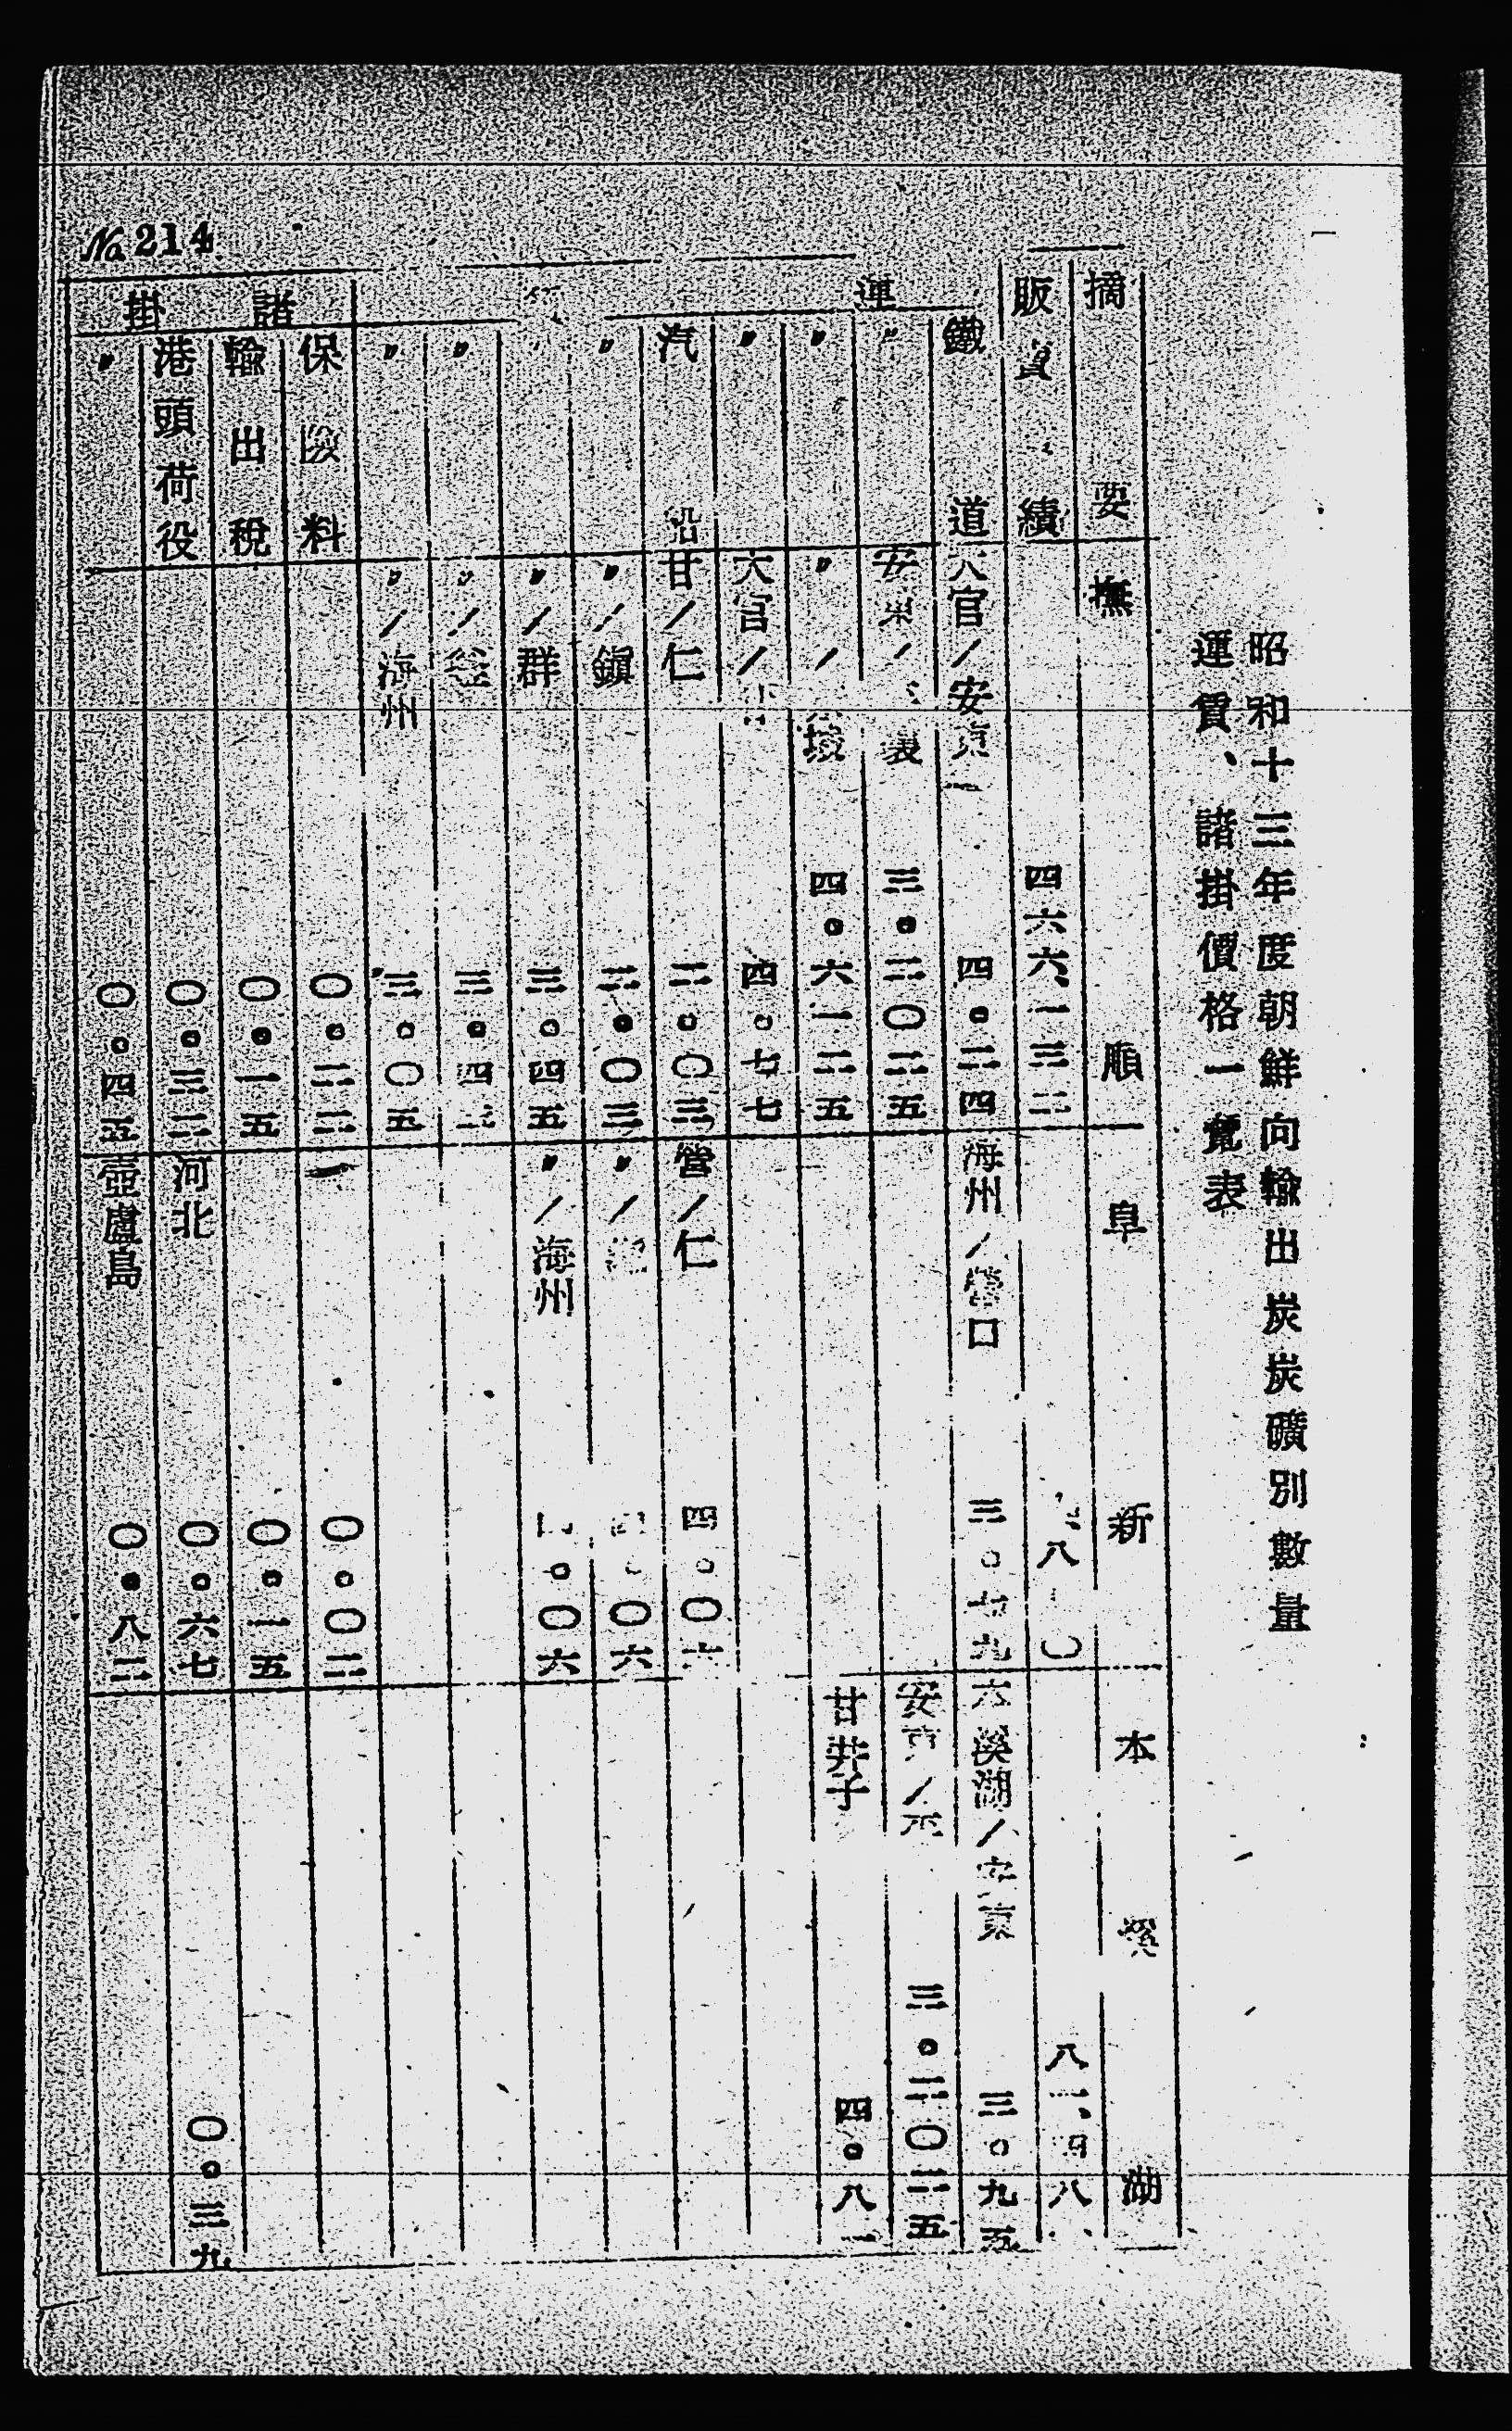 昭和十三年度朝鮮向輸出炭炭礦別數量
運賃、諸掛價格一覽表
摘要 撫順 阜新 本溪湖
販賣 績 四六六、一三二 八 〇 八 八
運
鐵道 大官/安東 四。二四 海州/營口 三。七九 本溪湖/安東 三。九五
〃 安東/ 三。二〇二五 安東/ 三。二〇二五
〃 〃/ 四。六一二五 甘井子 四。八一
〃 大官/ 四。七七
汽 沿 甘/仁 二。〇三 營/仁 四。〇六
〃 〃/鎭 二。〇三 〃/ 四。〇六
〃/群 三。四五 〃/海州 四。〇六
〃 〃/ 三。四
〃 〃/海州 三。〇五
諸掛
保險料 〇。二二 〇。〇二
輸出稅 〇。一五 〇。一五
港頭荷役 〇。三二 河北 〇。六七 〇。三九
〃 〇。四五 壺盧島 〇。八二
No. 214